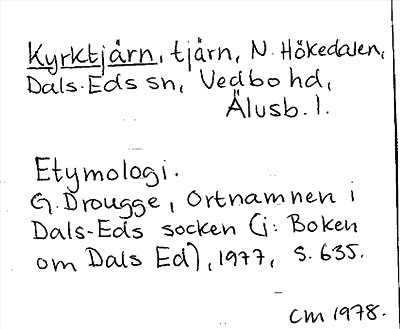 Kyrktjärn, tjärn, N. Hökedalen,
Dals-Eds sn, Vedbo hd,
Älvsb. l.
Etymologi.
G. Drougge, Ortnamnen i
Dals-Eds socken (i: Boken
om Dals Ed), 1977, s. 635.
CM 1978.